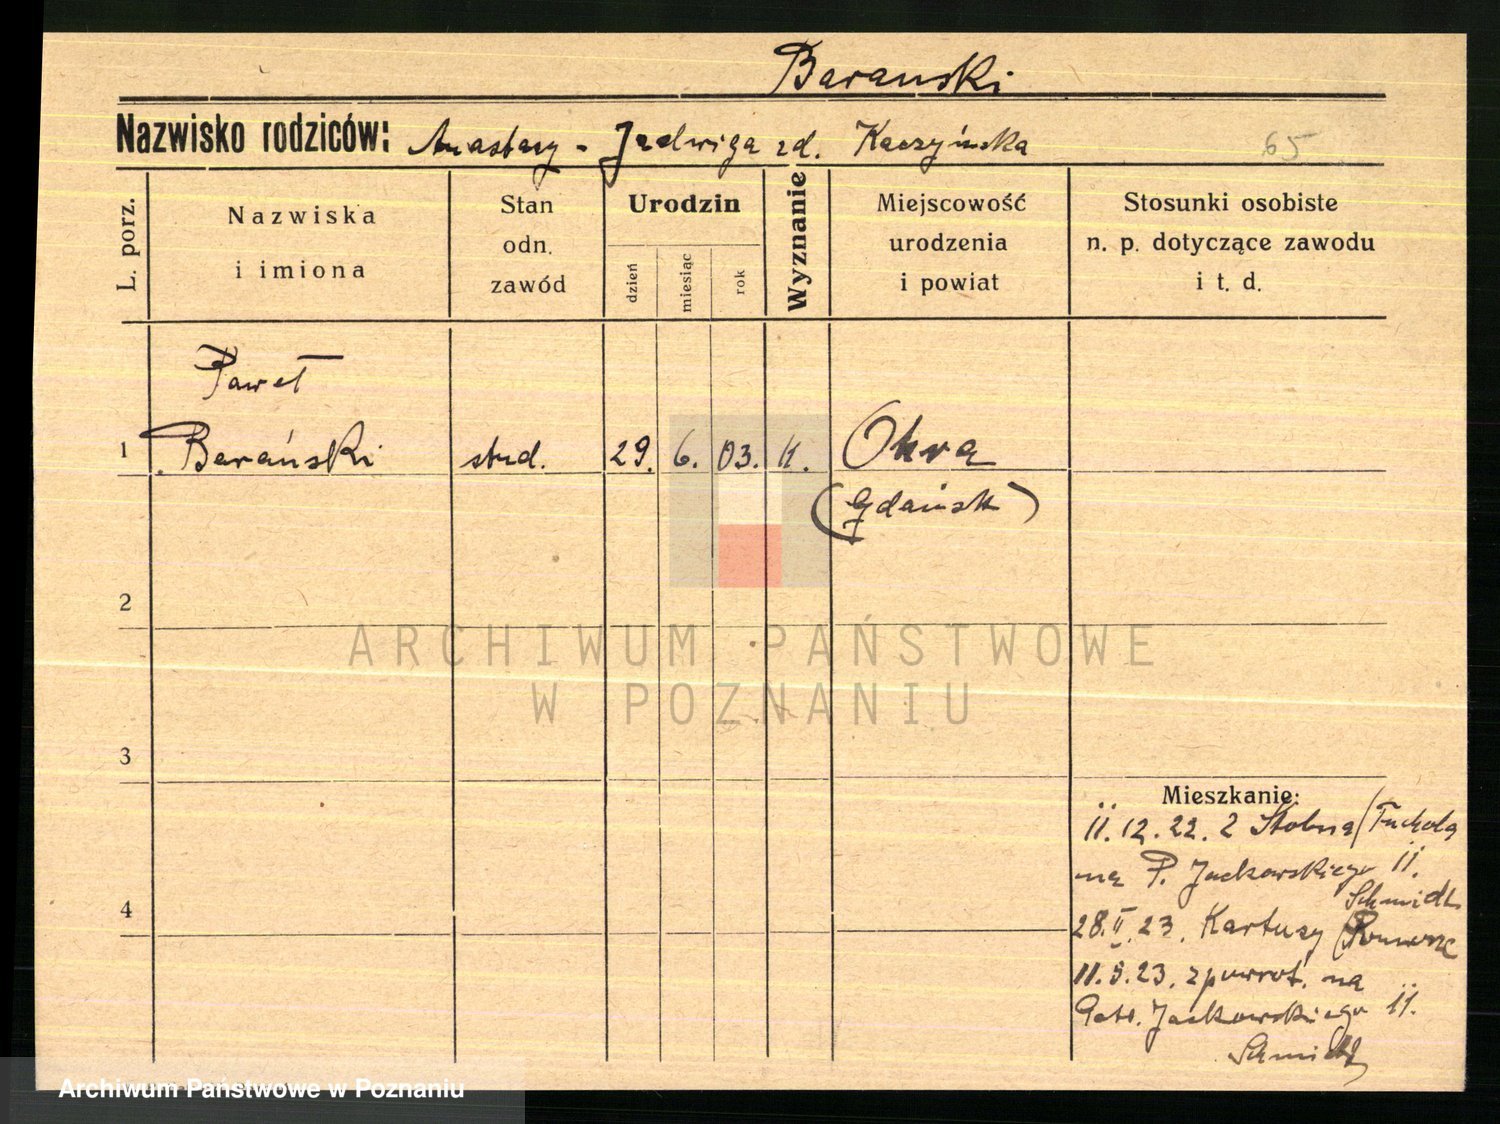 Barański
Nazwisko rodziców: Anastazy - Jadwiga zd. Kaczyńska
65
L. porz.
Nazwiska
i imiona
Stan
odn.
zawód
Urodzin
dzień
miesiąc
rok
Wyznanie
Miejscowość
urodzenia
i powiat
Stosunki osobiste
n. p. dotyczące zawodu
i t. d.
Paweł
1 Barański stud. 29. 6. 03. k.
(Gdańsk)
2
3
4
ARCHIWUM PAŃSTWOWE
W POZNANIU
Mieszkanie:
11.12.22. z (Tuchola
na P. Jackowskiego 11.
Schmidt
28.II.23. Kartuzy (Pomorze
11.5.23. zpowrot. na
Jackowskiego 11.
Schmidt
Archiwum Państwowe w Poznaniu